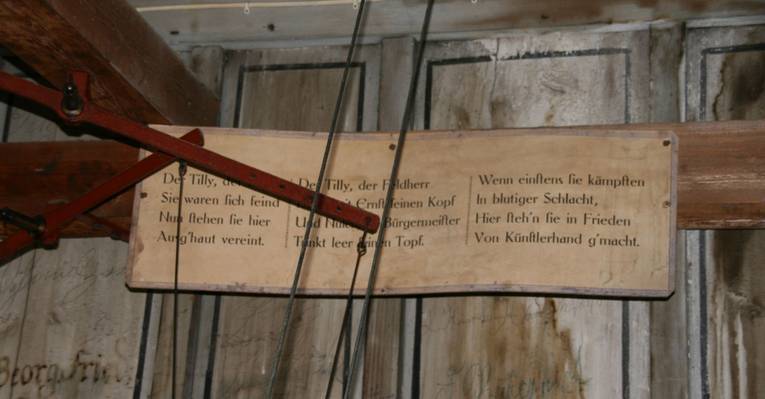 Der Tilly, der
Sie waren sich feind
Nun stehen sie hier
Aus'g'haut vereint.
Der Tilly, der Feldherr
mit Ernst seinen Kopf
Und Bürgermeister
Trinkt leer seinen Topf.
Wenn einstens sie kämpften
In blutiger Schlacht,
Hier steh'n sie in Frieden
Von Künstlerhand g'macht.
Georg Fried